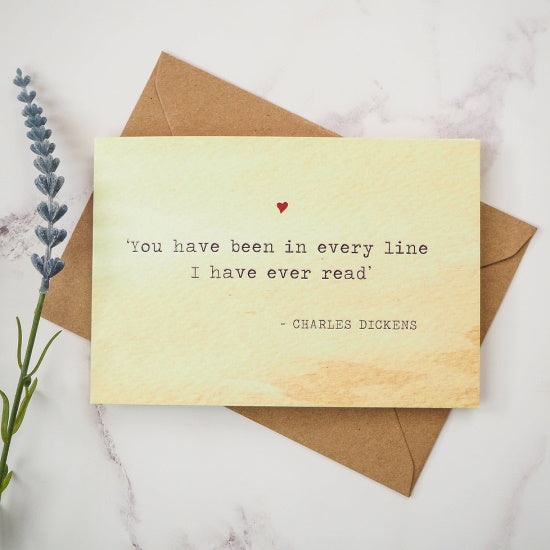 ‘You have been in every line
I have ever read’
- CHARLES DICKENS